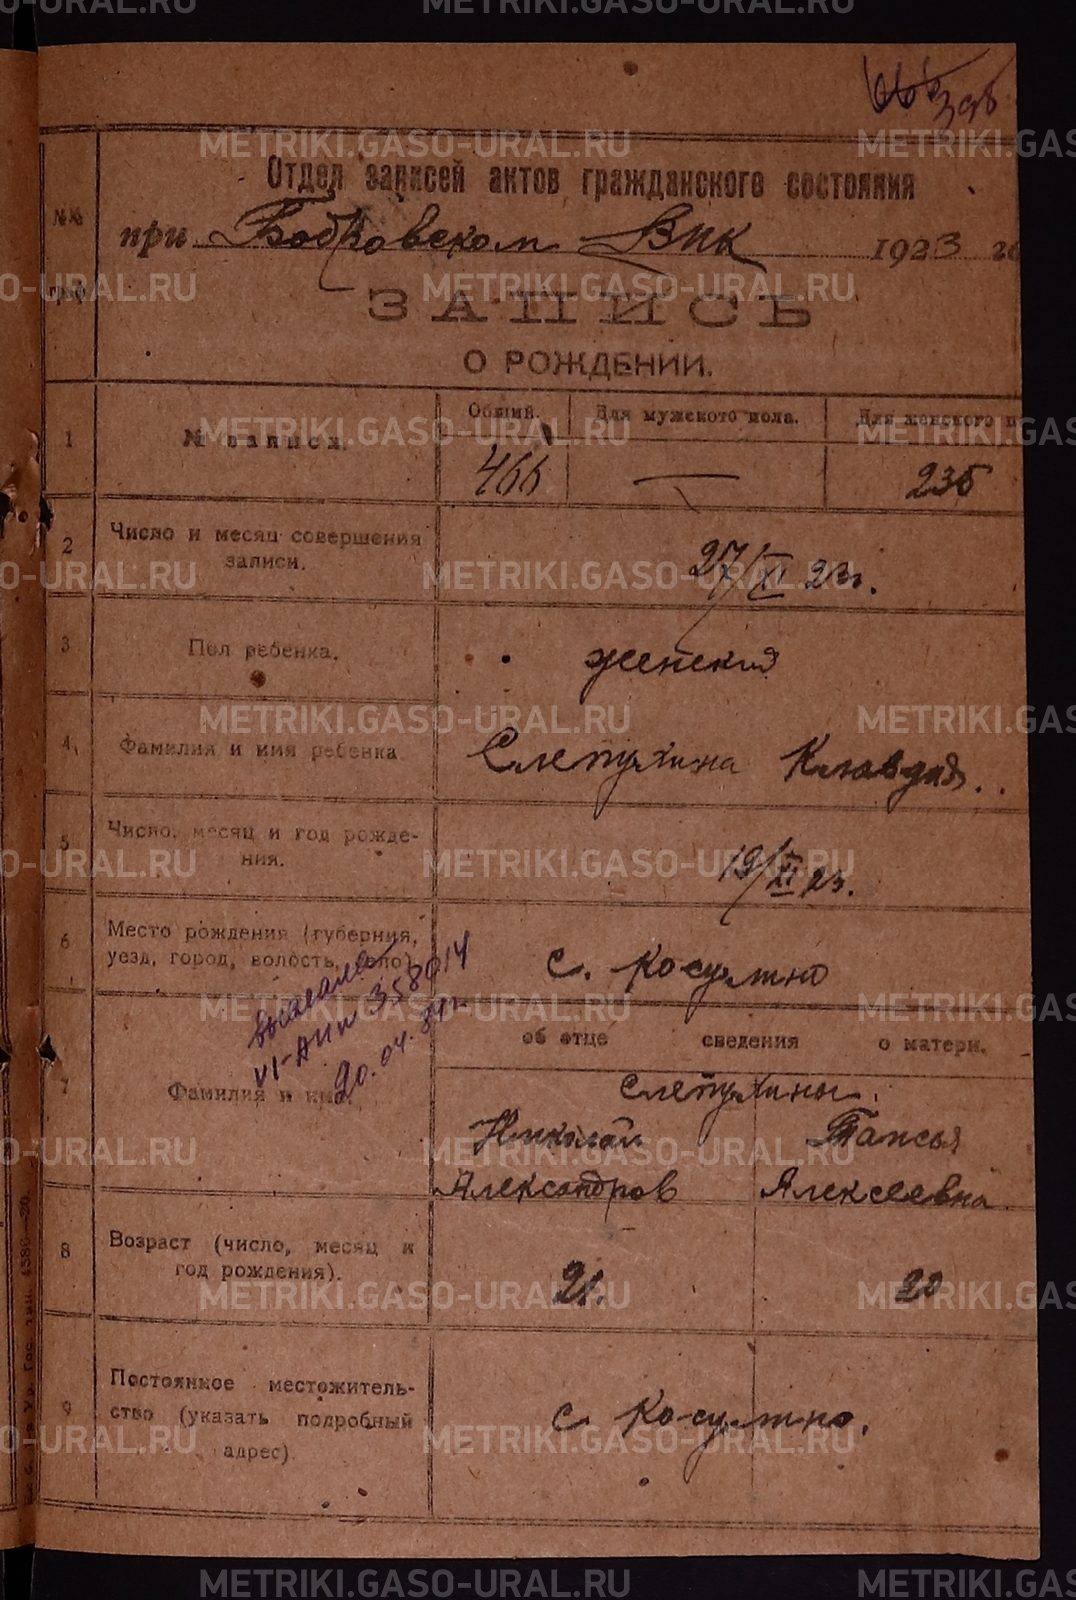 METRIKI.GASO-URAL.RU
398
Отдел записей актов гражданского состояния
№№
граф
при Бобровском ВИК 1923 го
ЗАПИСЬ
О РОЖДЕНИИ.
1 № записи. Общий. Для мужского пола. Для женского п
466 — 235
2 Число и месяц совершения
записи. 27/XI 23г.
3 Пол ребенка. женский
4 Фамилия и имя ребенка Слепухина Клавдия.
5 Число, месяц и год рожде-
ния. 19/XI 23.
6 Место рождения (губерния,
уезд, город, волость, село) с. Косулино
об отце сведения о матери.
7 Фамилия и имя Слепухины.
Николай Таисья
Александров Алексеевна
20.04.84г.
8 Возраст (число, месяц и
год рождения). 21. 20
9 Постоянное местожитель-
ство (указать подробный
адрес) с. Косулино.